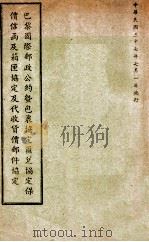 中華民國三十七年七月一日施行
巴黎國際郵政公約暨包裹協定匯兌協定保
價信函及箱匣協定及代收貨價郵件協定